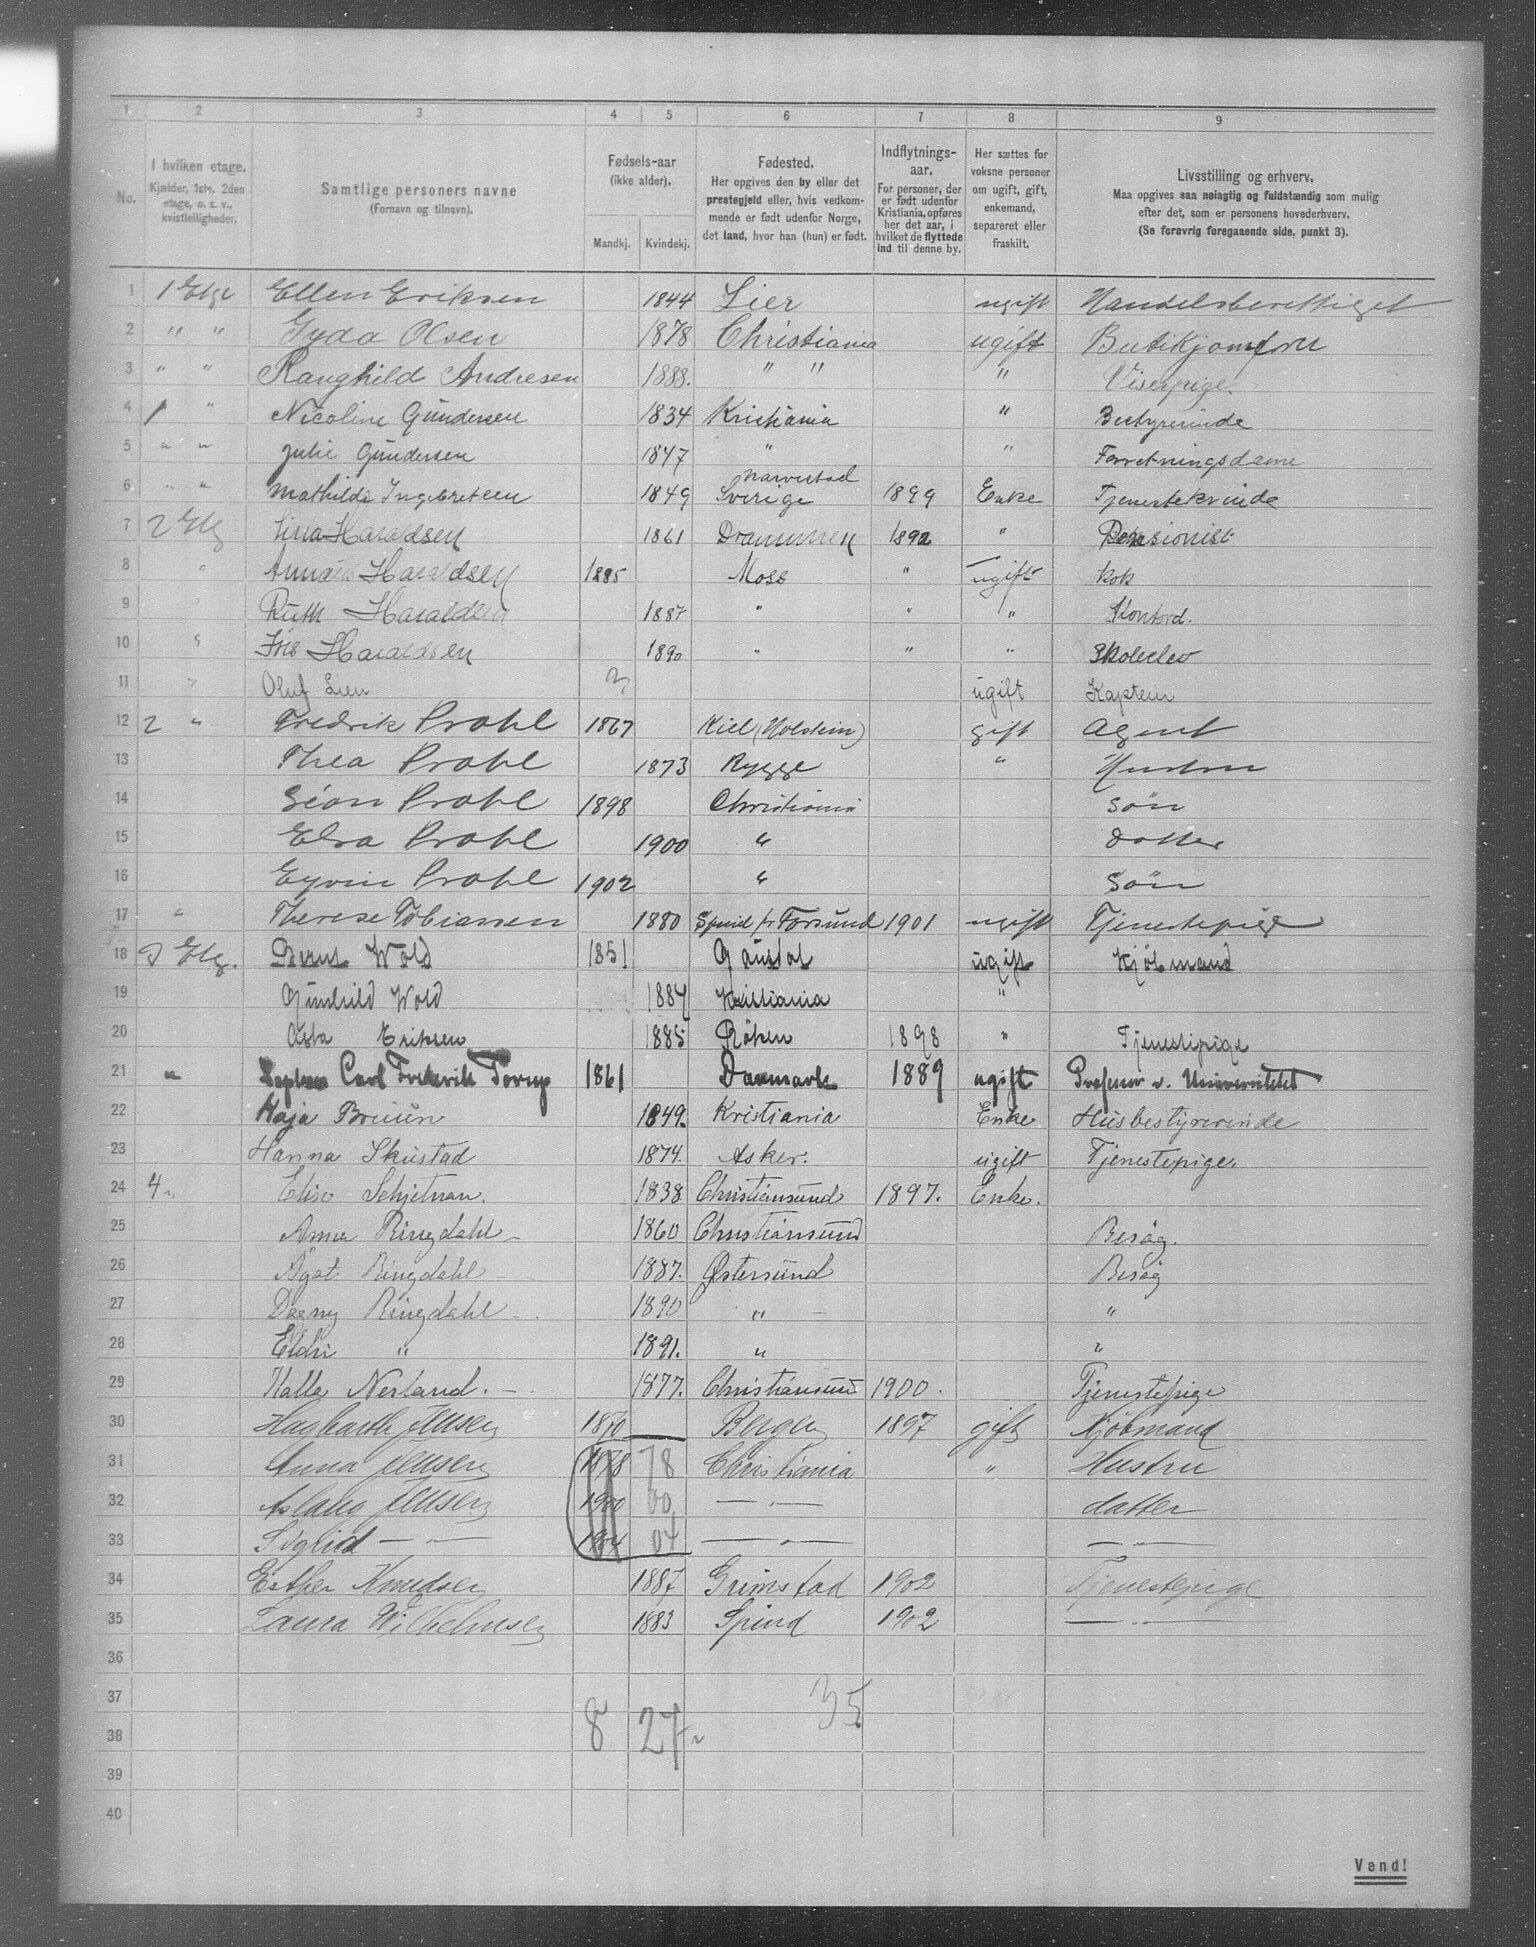 1 2 3 4 5 6 7 8 9
No. I hvilken etage. Kjælder, 1ste, 2den etage, o. s. v., kvistleiligheder. Samtlige personers navne (Fornavn og tilnavn). Fødsels-aar (ikke alder). Mandkj. Kvindekj. Fødested. Her opgives den by eller det prestegjeld eller, hvis vedkommende er født udenfor Norge, det land, hvor han (hun) er født. Indflytnings-aar. For personer, der er født udenfor Kristiania, opføres her det aar, i hvilket de flyttede ind til denne by. Her sættes for voksne personer om ugift, gift, enkemand, separeret eller fraskilt. Livsstilling og erhverv. Maa opgives saa nøiagtig og fuldstændig som mulig efter det, som er personens hovederhverv. (Se forøvrig foregaaende side, punkt 3).
1 1 Etge Ellen Eriksen 1844 Lier ugift Handelsberettiget
2 " " Gyda Olsen 1878 Christiania ugift Butikjomfru
3 " " Ranghild Andresen 1888. " " " Viserpige.
4 1 " Nicoline Gundersen 1834 Kristiania " Bestyrerinde
5 " " Julie Gundersen 1847 " " Forretningsdame
6 " " Mathilde Ingebretsen 1849 Sverige 1899 Enke Tjenestekvinde
7 2 Etg Lina Haraldsen 1861 Drammen 1892 " Pensionist
8 " Haraldsen 1885 Moss " ugift kok
9 " Ruth Haraldsen 1887 " " " Kontord.
10 " Iris Haraldsen 1890 " " " Skoleelev
11 " Oluf Lien ugift Kaptein
12 2 " Fredrik Prahl 1867 Kiel (Holstein) gift Agent
13 Thea Prahl 1873 Rygge " Hustru
14 Prahl 1898 Christiania Søn
15 Elsa Prahl 1900 " Datter
16 Eyvin Prahl 1902 " Søn
17 " Therese Tobiassen 1880 Spind pr Farsund 1901 ugift Tjenestepige
18 3 Etg. Bernt Wold 1851 ugift Kjøbmand
19 Gunhild Wold 1884 Kristiania "
20 Asta Eriksen 1885 Røken 1898 " Tjenestepige
21 " Sophus Carl Frederik Torup 1861 Danmark 1889 ugift Professor v. Universitetet
22 Kaja Bruun 1849. Kristiania Enke Husbestyrerinde
23 Hanna Skustad 1874. Asker. ugift Tjenestepige.
24 4 " Elise Schjetnan. 1838 Christiansund 1897. Enke.
25 Anna Ringdahl 1860 Christiansund Besøg.
26 Agot Ringdahl 1887. Østersund Besøg
27 Dagny Ringdahl 1890 " "
28 Eldri " 1891. " "
29 Kalla Nerland. 1877. Christiansund 1900. Tjenestepige
30 Hagbarth Jensen 1870 Bergen 1897 gift Kjøbmand
31 Anna Jensen 1878 78 Christiania " Hustru
32 Aslaug Jensen 1900 00 — " — datter
33 Sigrid — " — 1904 04 — " — — " —
34 Esther Knudsen 1887 Grimstad 1902 Tjenestepige
35 Laura Wilhelmsen 1883 Spind 1902 — " —
36
37 35
38 8 27
39
40
Vend!